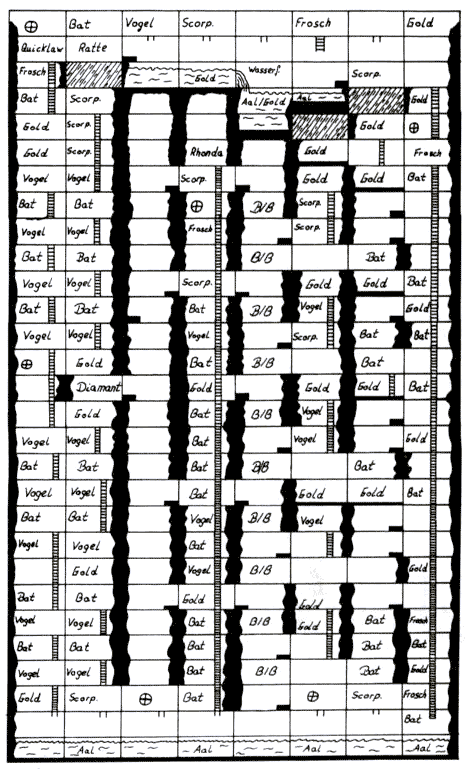 Bat Vogel Scorp. Frosch Gold
Quicklaw Ratte
Frosch Gold Wasserf. Scorp.
Bat Scorp. Aal/Gold Aal Gold
Gold Scorp. Gold
Gold Scorp. Rhonda Gold Frosch
Vogel Vogel Scorp. Gold Gold Bat
Bat Bat B/B Scorp.
Vogel Vogel Frosch Scorp.
Bat Bat B/B Bat
Vogel Vogel Scorp. Gold Gold Bat
Bat Bat Bat B/B Vogel Gold
Vogel Vogel Vogel Scorp. Bat Bat
Gold Bat B/B Bat
Diamant Gold Gold Gold Bat
Gold Bat B/B Vogel
Vogel Vogel Bat Vogel Gold
Bat Bat Bat B/B Bat
Vogel Vogel Bat Gold Gold Bat
Bat Bat Vogel B/B Vogel
Vogel Bat
Gold Vogel B/B Gold
Bat Bat Gold Gold
Vogel Vogel Bat B/B Gold Bat Frosch
Bat Bat Bat Bat Bat
Vogel Vogel Bat B/B Bat Gold
Gold Scorp. Bat Scorp. Frosch
Bat
Aal Aal Aal Aal